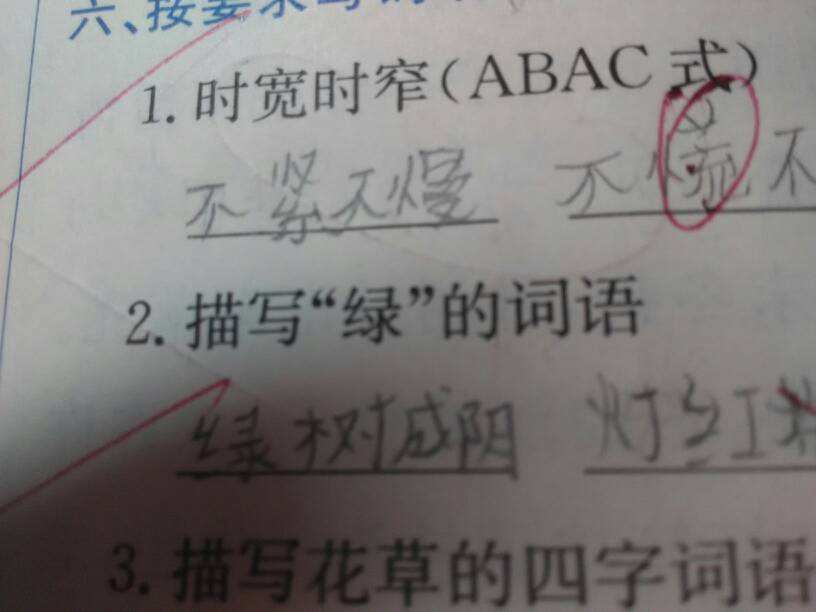 六、按要求写
1.时宽时窄(ABAC式)
不紧不慢 不慌不
2.描写“绿”的词语
绿树成阴 灯红
3.描写花草的四字词语